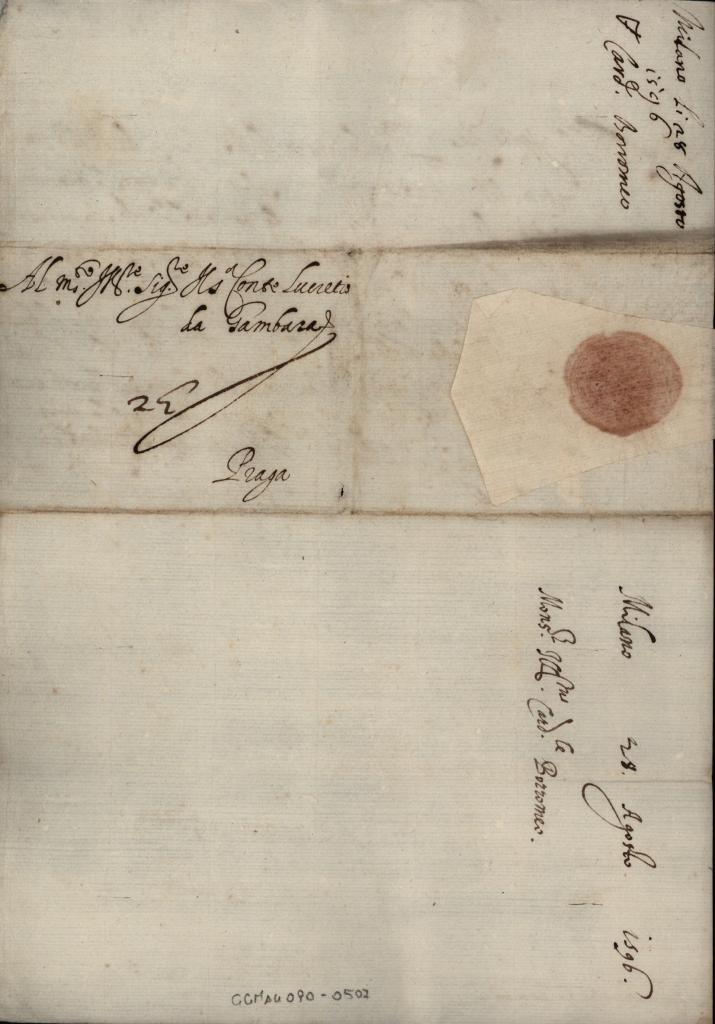 Milano Li 28 Agosto
1596
Card. Borromeo
Al m.to Ill.re Sig.re Il S.r Conte Lucretio
da Gambara
Praga
Milano 28. Agosto. 1596.
Mons.r Ill.mo Card.le Borromeo.
GGMAG 090 - 0502